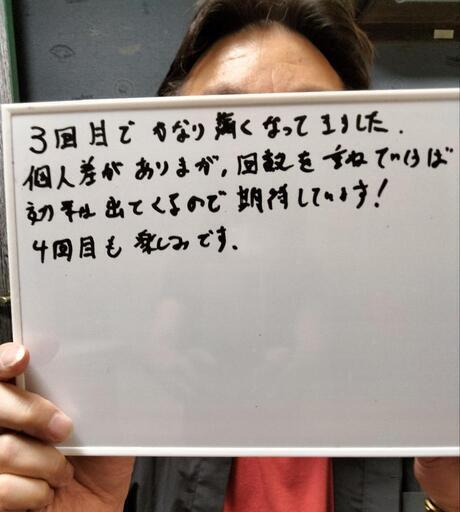 3回目で かなり薄くなってきました.
個人差がありまが,回数を重ねていけば
効果は出てくるので期待しています!
4回目も楽しみです.